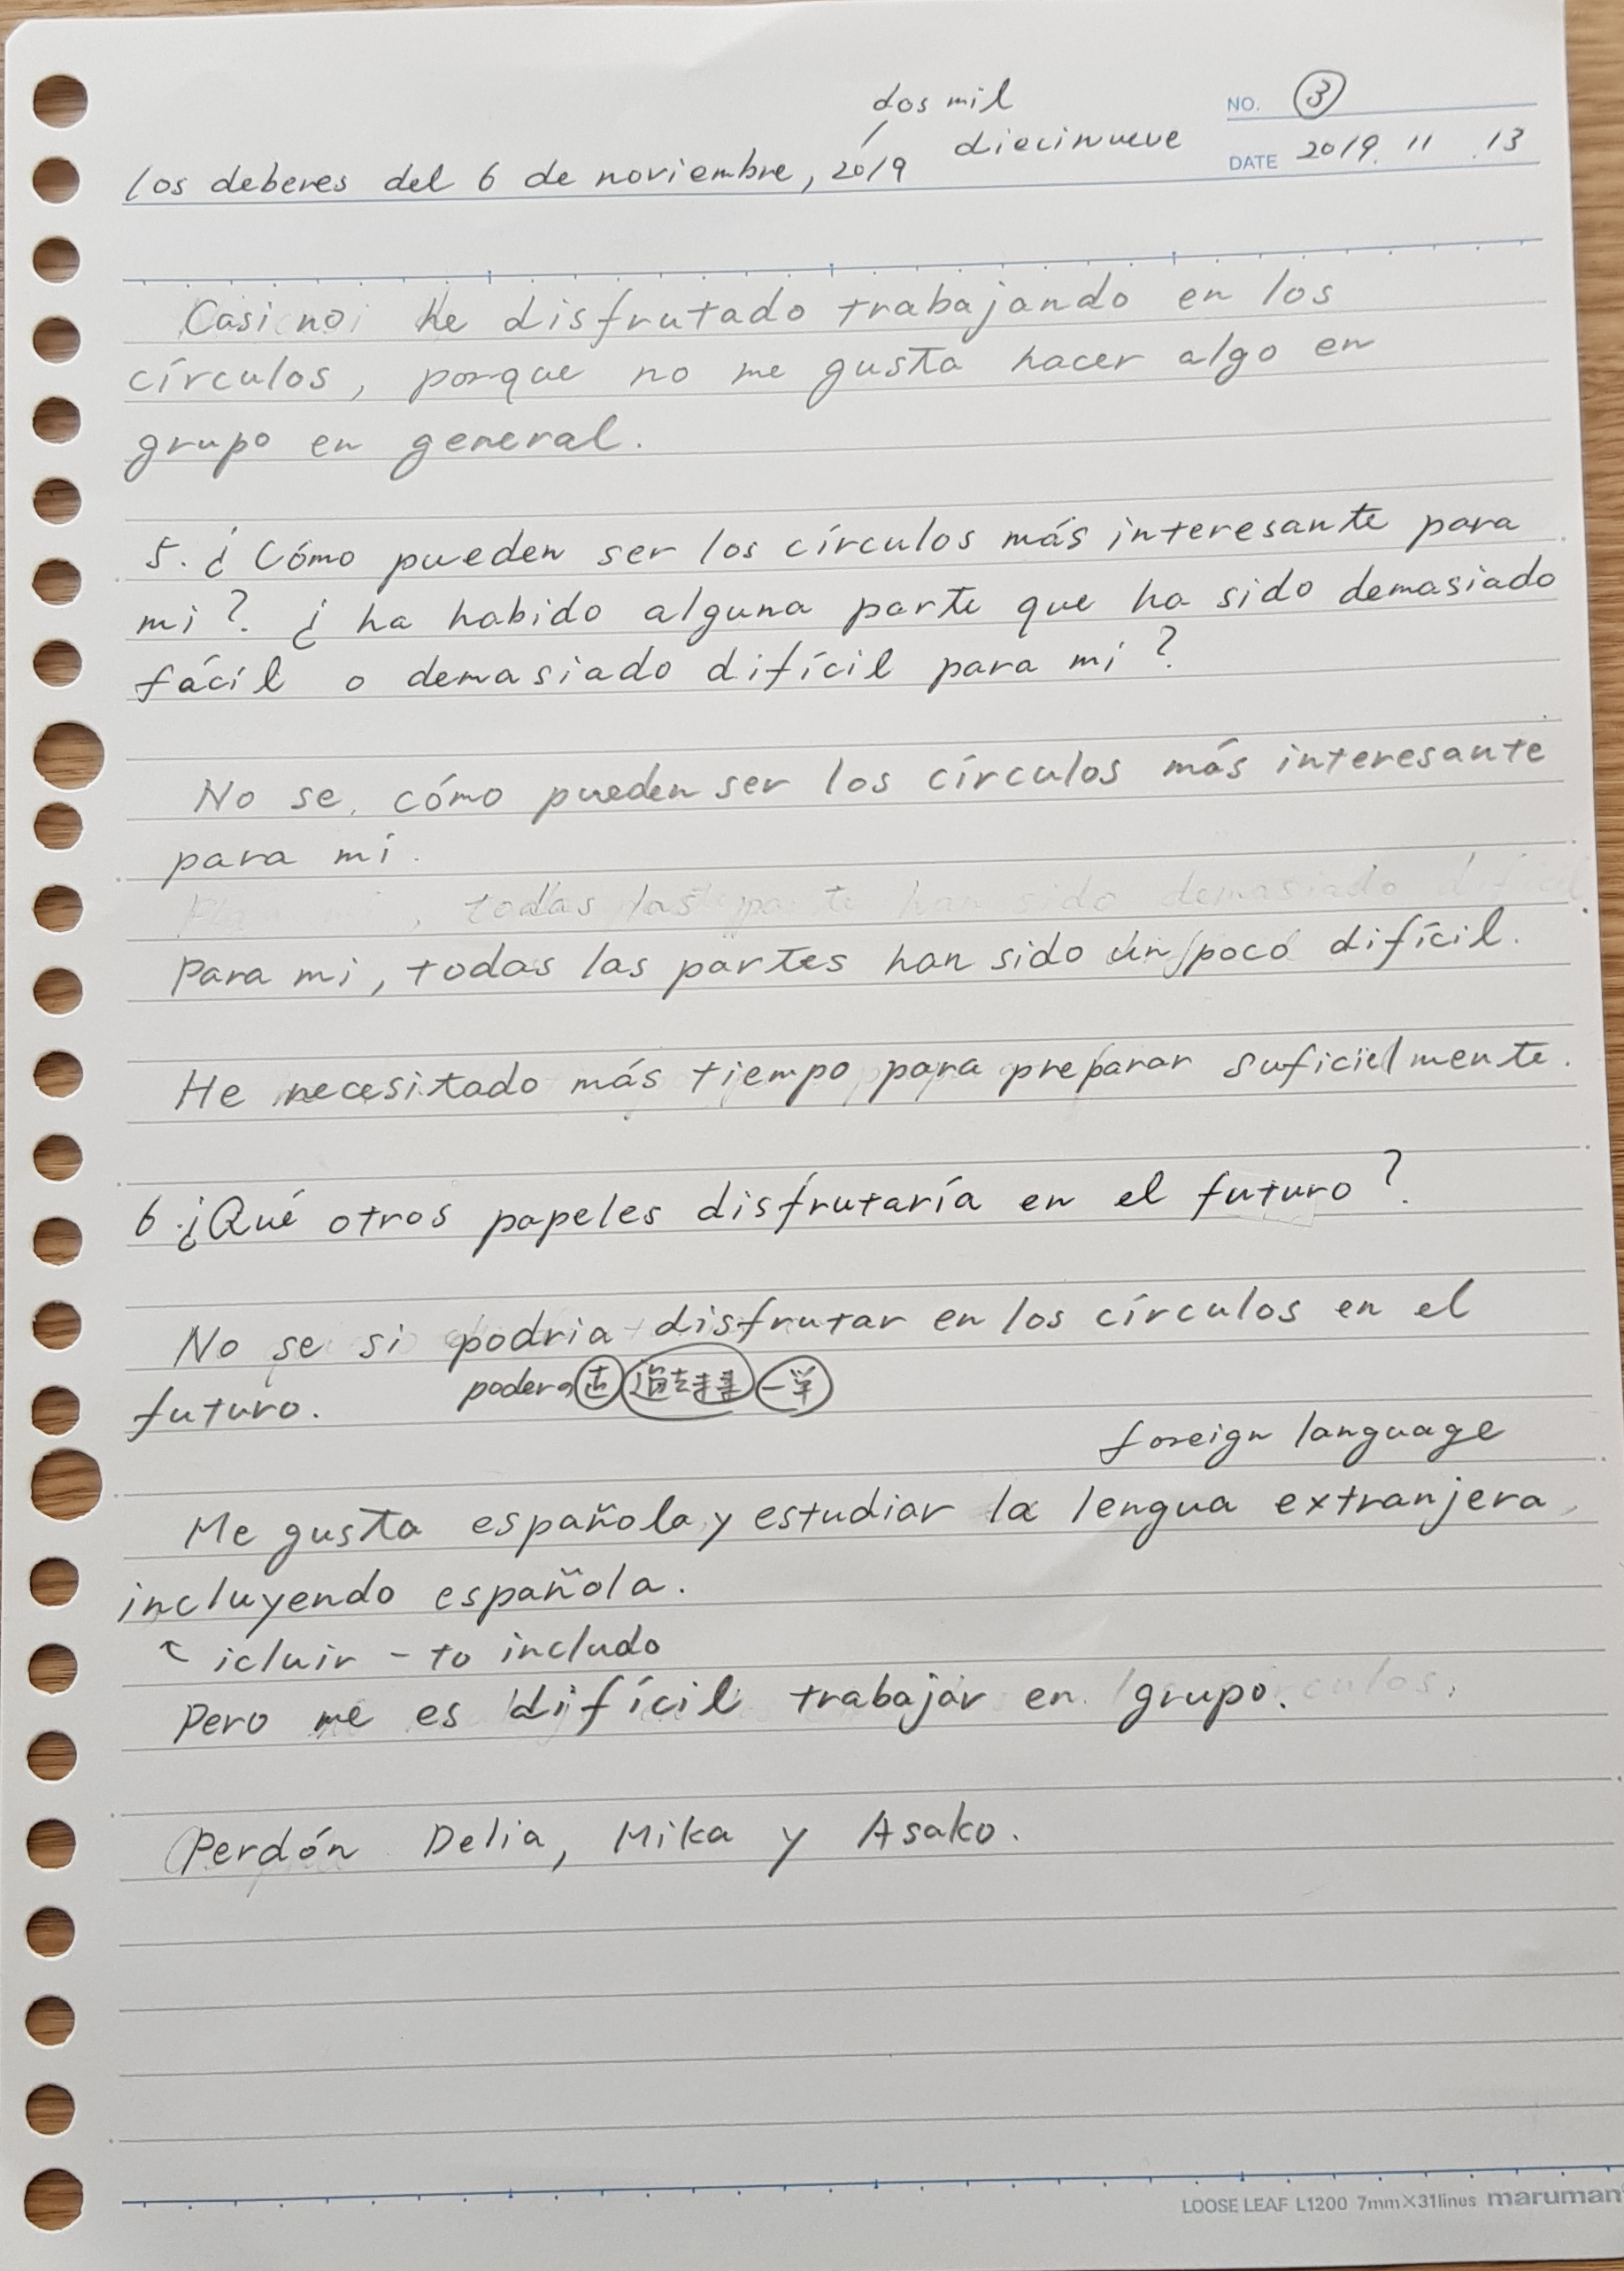 dos mil
diecinueve
NO. ③
los deberes del 6 de noviembre, 2019
DATE 2019. 11 .13
Casi no he disfrutado trabajando en los
círculos, porque no me gusta hacer algo en
grupo en general.
5. ¿Cómo pueden ser los círculos más interesante para
mi? ¿ha habido alguna parte que ha sido demasiado
fácil o demasiado difícil para mi?
No se, cómo pueden ser los círculos más interesante
para mí.
Para mi, todas las partes han sido un poco difícil.
He necesitado más tiempo para preparar suficielmente.
6. ¿Qué otros papeles disfrutaría en el futuro?
No se si podria disfrutar en los círculos en el
futuro.
poder
foreign language
Me gusta española y estudiar la lengua extranjera,
incluyendo española.
icluir - to includo
Pero me es difícil trabajar en grupo.
Perdón Delia, Mika y Asako.
LOOSE LEAF L1200 7mm×31lines maruman